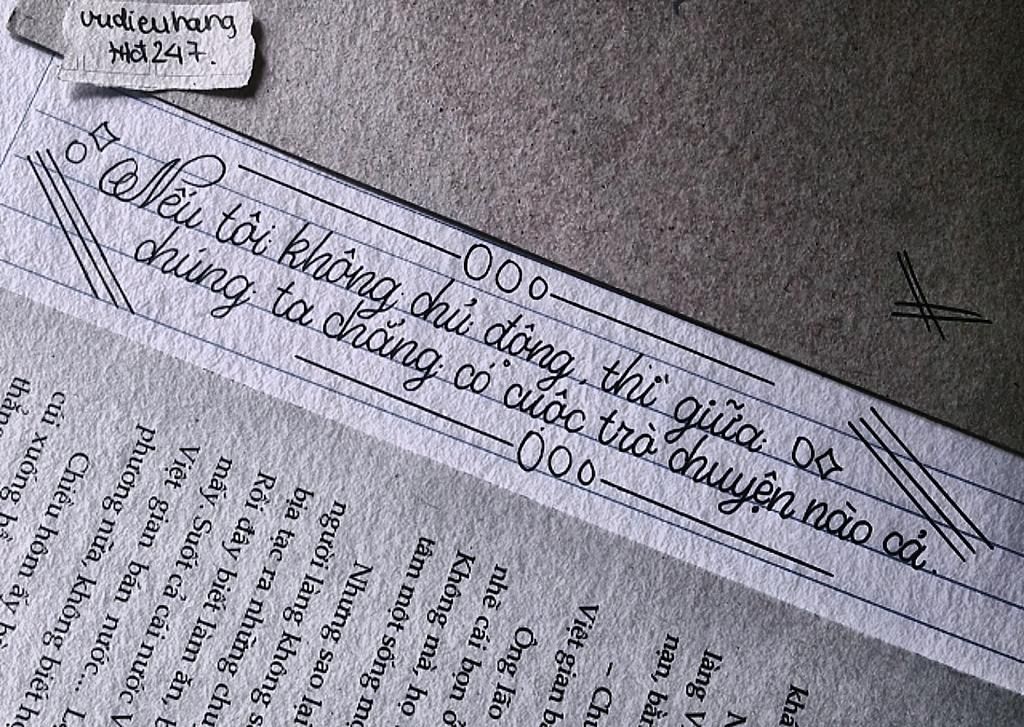 vudieuhang
247.
Nếu tôi không chủ động, thì giữa
chúng ta chẳng có cuộc trò chuyện nào cả.
cúi xuống
Chiều hôm ấy
phương nữa, không biết
Việt gian bán nước...
mấy. Suốt cả cái nước
Rồi đây biết làm ăn,
bịa tạc ra những
người làng không
Nhưng sao lại
tâm một sống
Không mà, họ
nhẽ cái bọn ở
Ông lão
Việt gian
nạn, bàn
làng